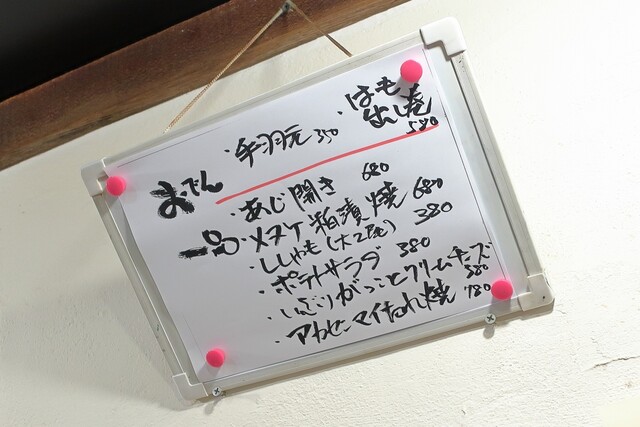 おでん
・手羽元 350
・はも出し巻 580
一品
・あじ開き 680
・メヌケ粕漬焼 680
・ししゃも(大2尾) 380
・ポテトサラダ 380
・いぶりがっことクリームチーズ 380
・アカセンマイたれ焼 780